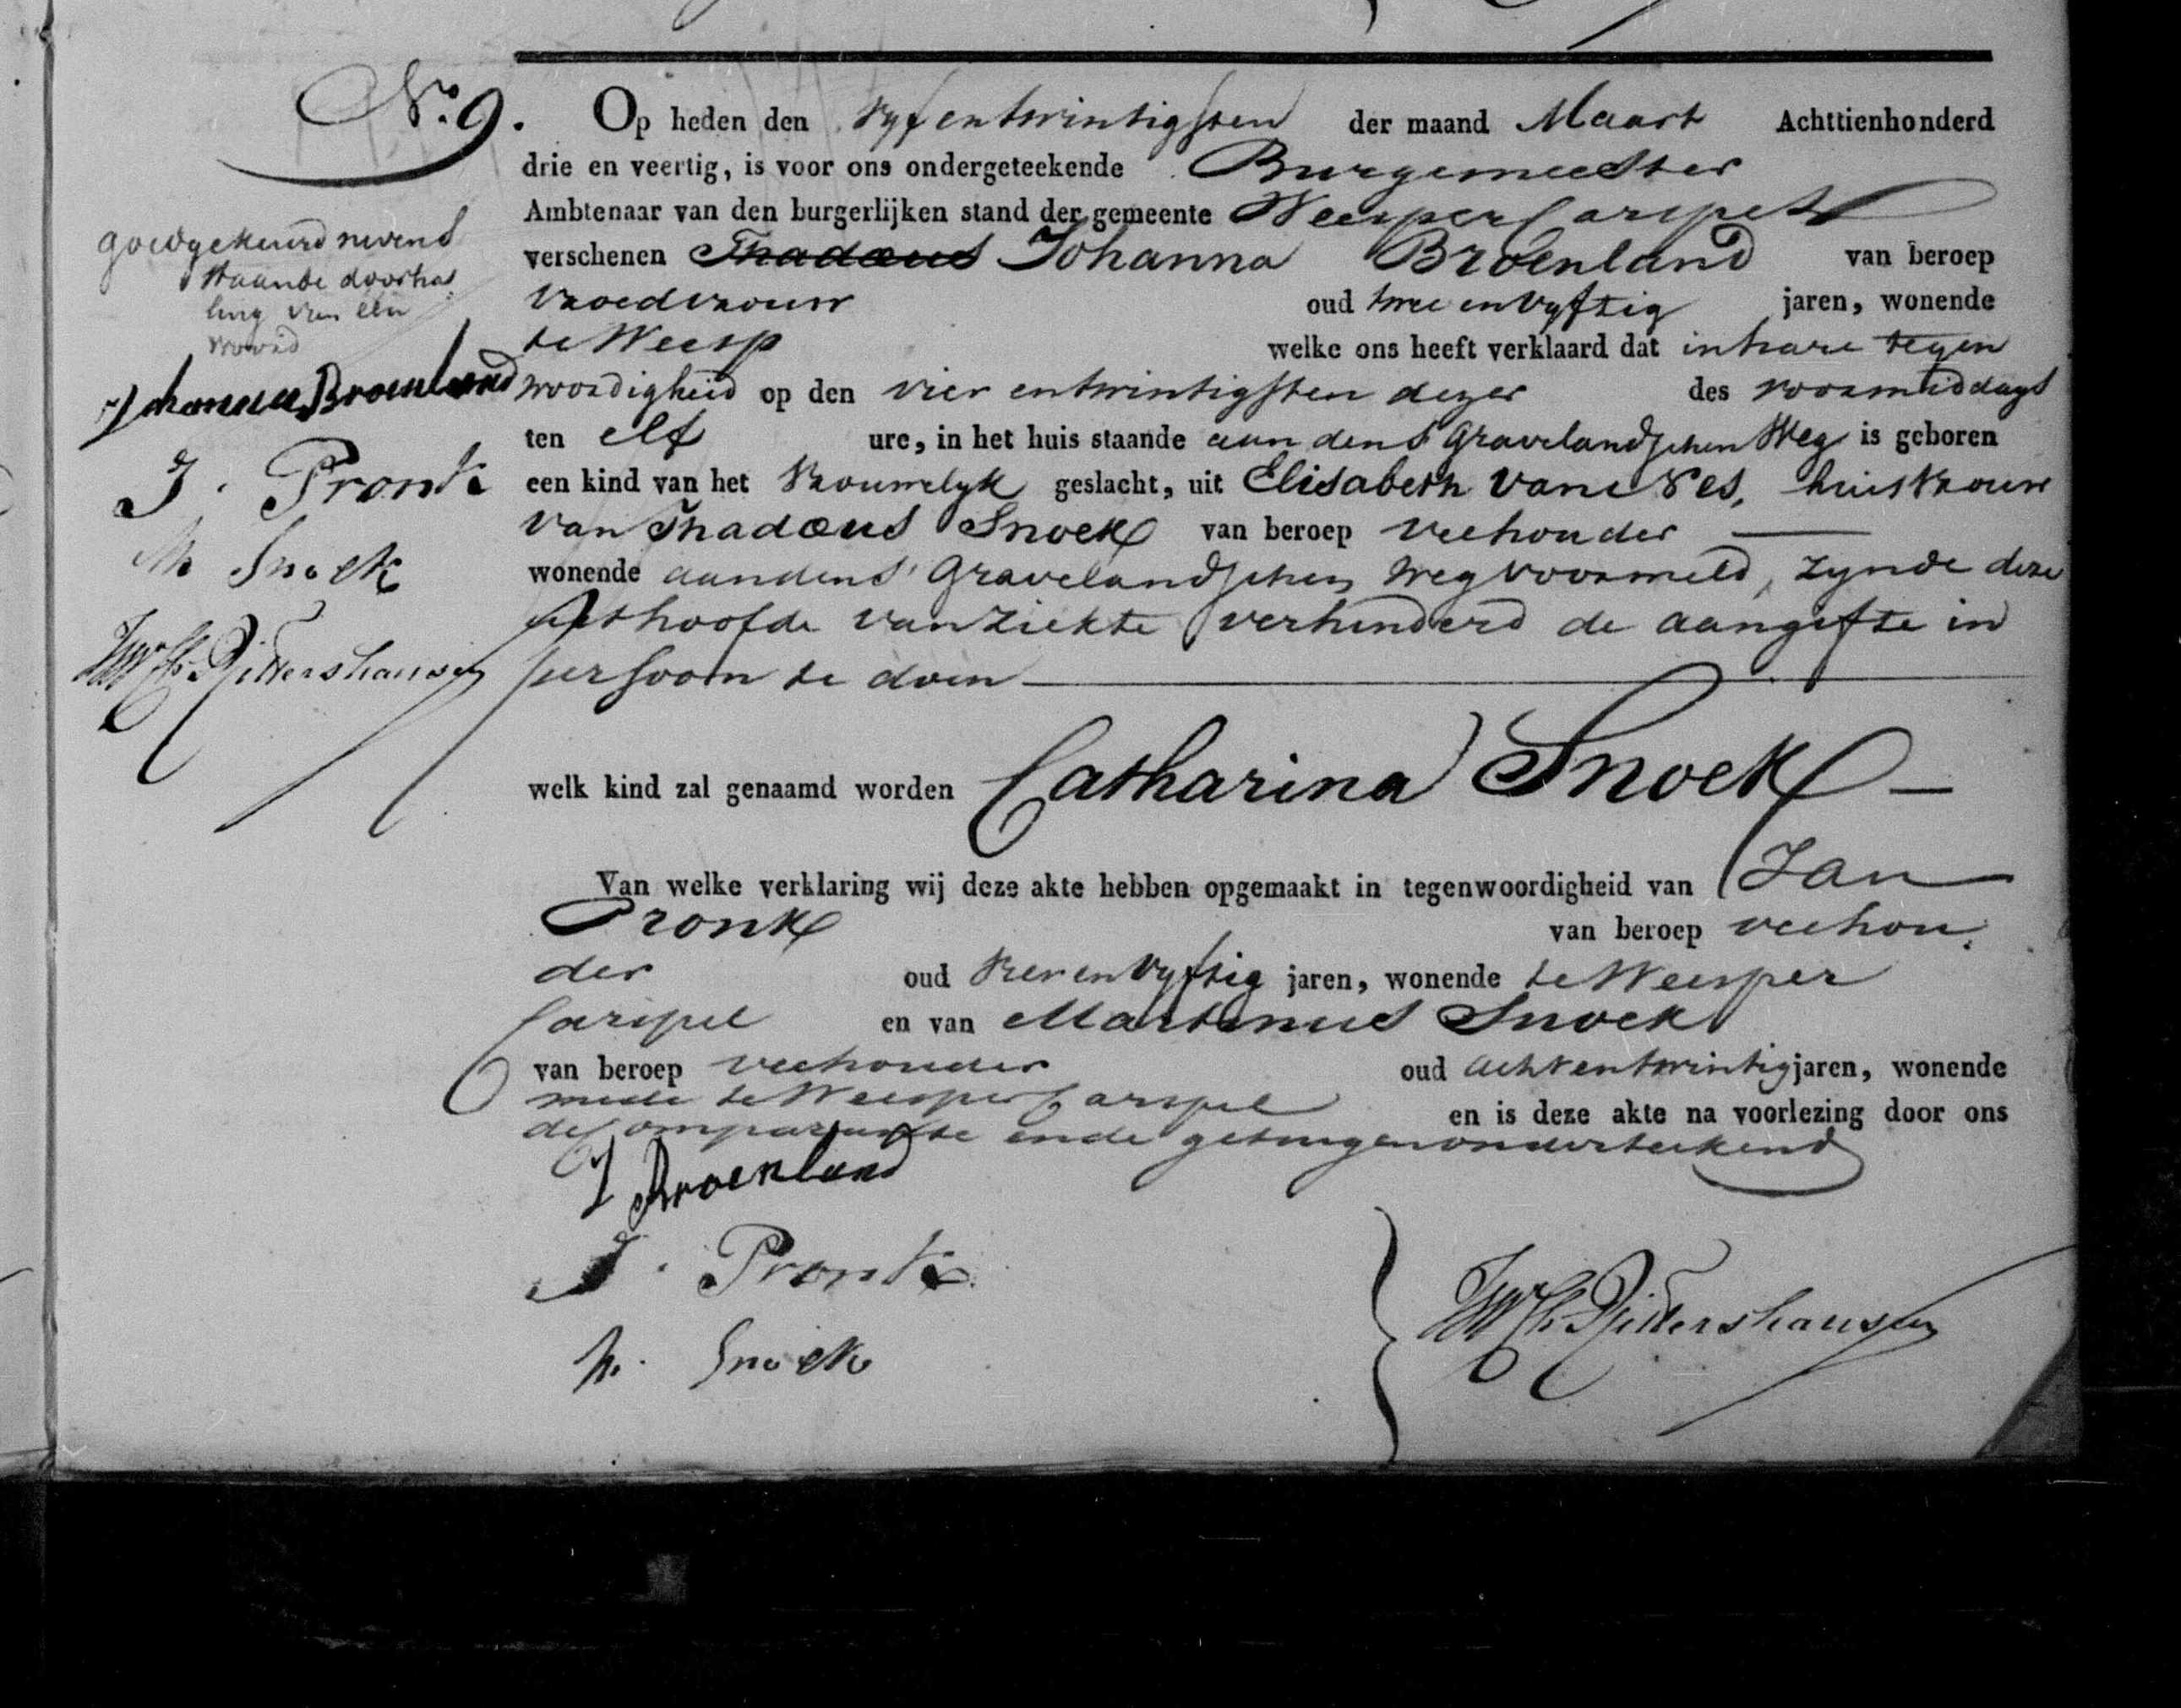 No. 9.
Op heden den vyf en twintigsten der maand Maart Achttienhonderd
drie en veertig, is voor ons ondergeteekende Burgemeester
Ambtenaar van den burgerlijken stand der gemeente Weesper Carspel
verschenen Thadæus Johanna Broenland van beroep
Vroedvrouw oud twee en vyftig jaren, wonende
te Weesp welke ons heeft verklaard dat in hare tegen
woordigheid op den vier en twintigsten dezer des voormiddags
ten elf ure, in het huis staande aan den s'Gravelandschen Weg is geboren
een kind van het Vrouwelyk geslacht, uit Elisabeth van Nes, huisvrouw
van Thadæus Snoek van beroep veehouder
wonende aan den s'Gravelandschen weg voormeld, zynde deze
uit hoofde van ziekte verhinderd de aangifte in
persoon te doen
welk kind zal genaamd worden Catharina Snoek
Van welke verklaring wij deze akte hebben opgemaakt in tegenwoordigheid van Jan
Pronk van beroep veehou
der oud vier en vyftig jaren, wonende te Weesper
Carspel en van Martinus Snoek
van beroep veehouder oud acht en twintig jaren, wonende
mede te Weesper Carspel en is deze akte na voorlezing door ons
de Comparante en de getuigen onderteekend
J Broenland
J. Pronk
M. Snoek
Rittershausen
goedgekeurd nevens
staande doorha
ling van een
woord
Johanna Broenland
J. Pronk
M Snoek
Rittershausen